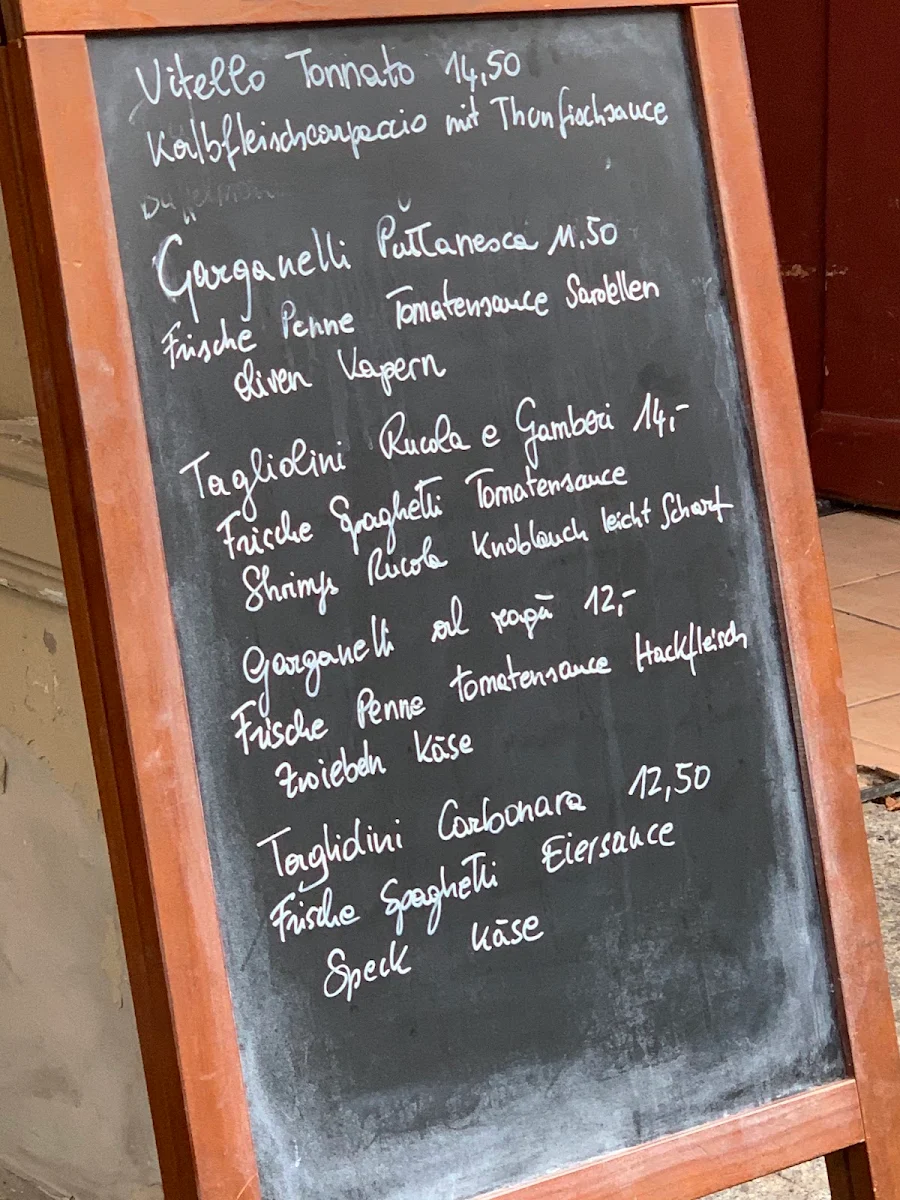 Vitello Tonnato 14,50
Kalbfleischcarpaccio mit Thunfischsauce
Garganelli Puttanesca 11.50
Frische Penne Tomatensauce Sardellen
Oliven Kapern
Tagliolini Rucola e Gamberi 14,-
Frische Spaghetti Tomatensauce
Shrimps Rucola Knoblauch leicht Scharf
Garganelli al ragù 12,-
Frische Penne tomatensauce Hackfleisch
Zwiebeln Käse
Tagliolini Carbonara 12,50
Frische Spaghetti Eiersauce
Speck Käse